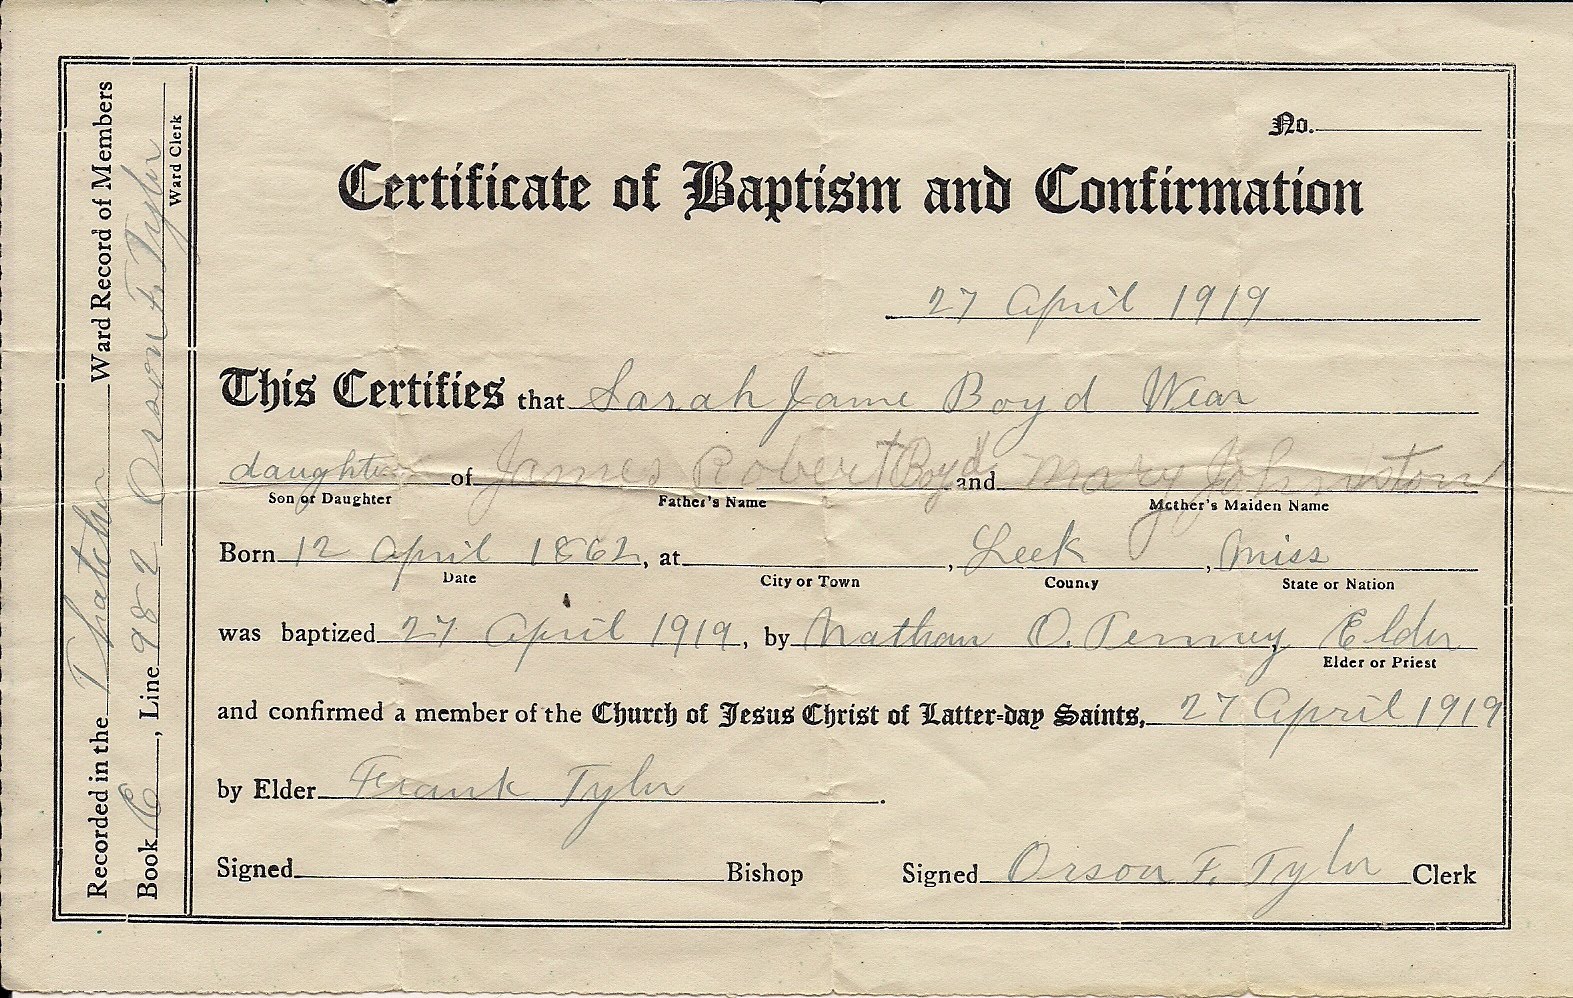 No.
Certificate of Baptism and Confirmation
27 April 1919
This Certifies that Sarah Jane Boyd Wear
daughter of James Robert Boyd and Mary Johnston
Son or Daughter Father's Name Mother's Maiden Name
Born 12 April 1862, at , Leek , Miss
Date City or Town County State or Nation
was baptized 27 April 1919, by Nathan O. Penney, Elder
Elder or Priest
and confirmed a member of the Church of Jesus Christ of Latter-day Saints, 27 April 1919
by Elder Frank Tyler.
Signed Bishop Signed Orson F. Tyler Clerk
Recorded in the Thatcher Ward Record of Members
Book C, Line 982 Orson F. Tyler
Ward Clerk